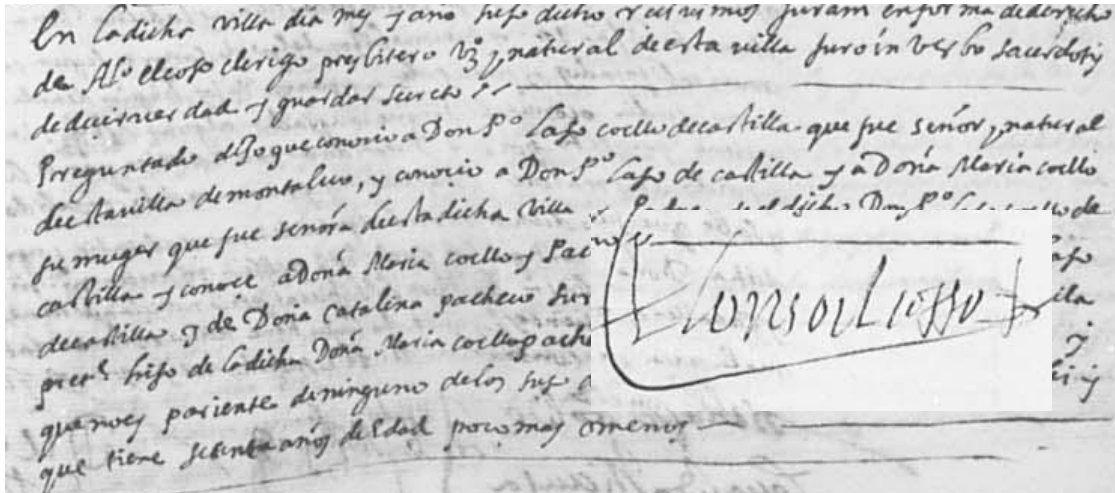 En la dicha villa dia mes y año suso dicho recivimos juram en forma de derecho
de Al.º elcoso clerigo presbitero vz.º y natural de esta villa juro in verbo sacerdotis
de decir verdad y guardar secreto
Preguntado dijo que conocio a Don P.º Laso coello de castilla que fue señor y natural
de esta villa de montalvo, y conocio a Don P.º Laso de castilla y a Doña Maria coello
su muger que fue señora de esta dicha villa
castilla y conoce a Doña Maria coello y Pac
de castilla y de Doña Catalina pacheco sus
pret. hijo de la dicha Doña Maria coello pach
que no es pariente de ninguno de los suso
que tiene setenta años de edad poco mas o menos